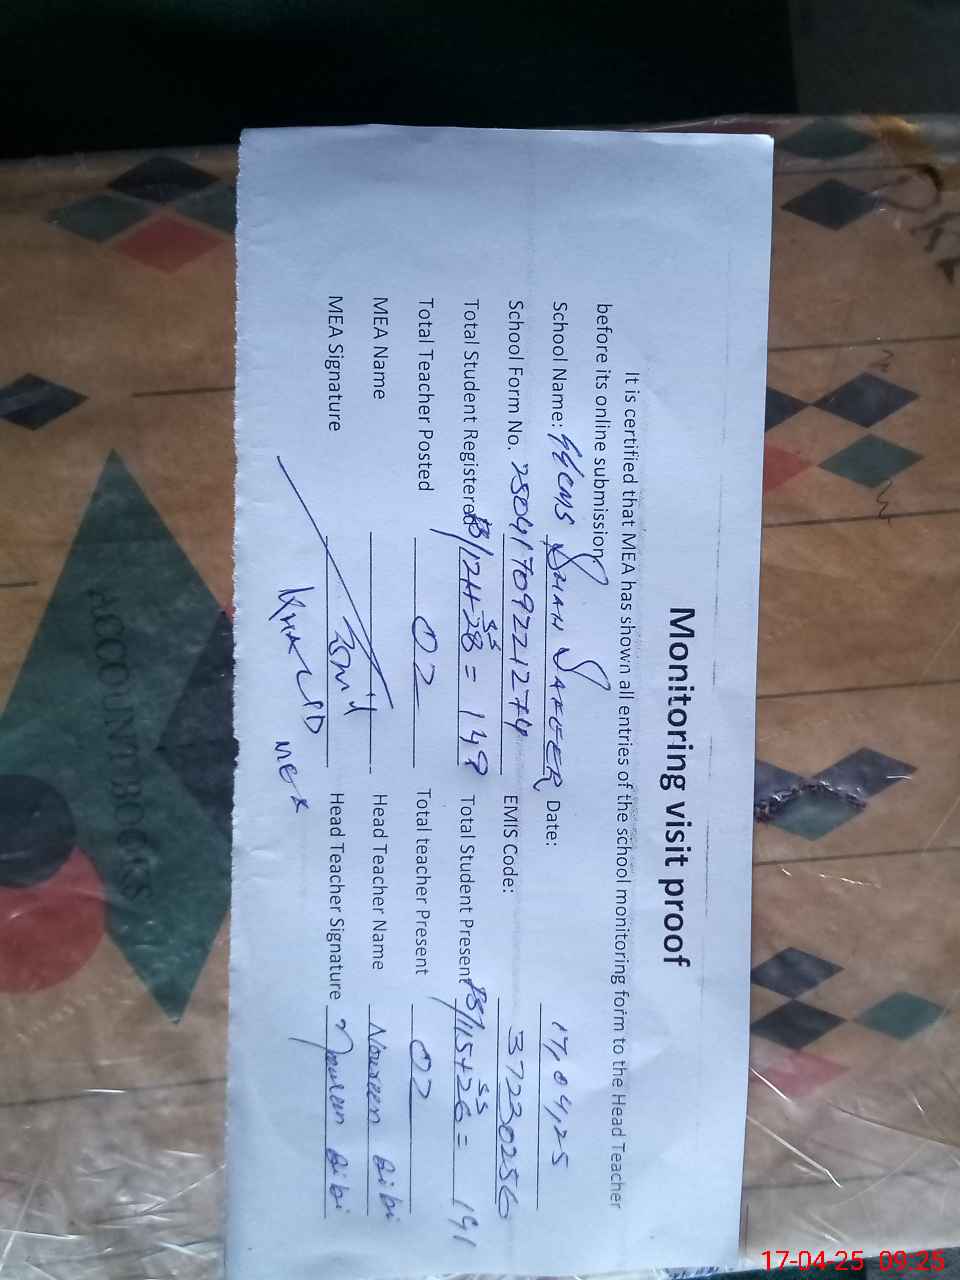 Monitoring visit proof
It is certified that MEA has shown all entries of the school monitoring form to the Head Teacher
before its online submission
School Name: Date: 17,04,25
School Form No. EMIS Code: 37230256
Total Student Registered PS/121+28 SS = 149 Total Student Present PS/115+26 SS = 141
Total Teacher Posted 02 Total teacher Present 02
MEA Name Head Teacher Name Noureen Bibi
MEA Signature Head Teacher Signature Noureen Bibi
ACCOUNT BOOKS
17-04-25 09:25